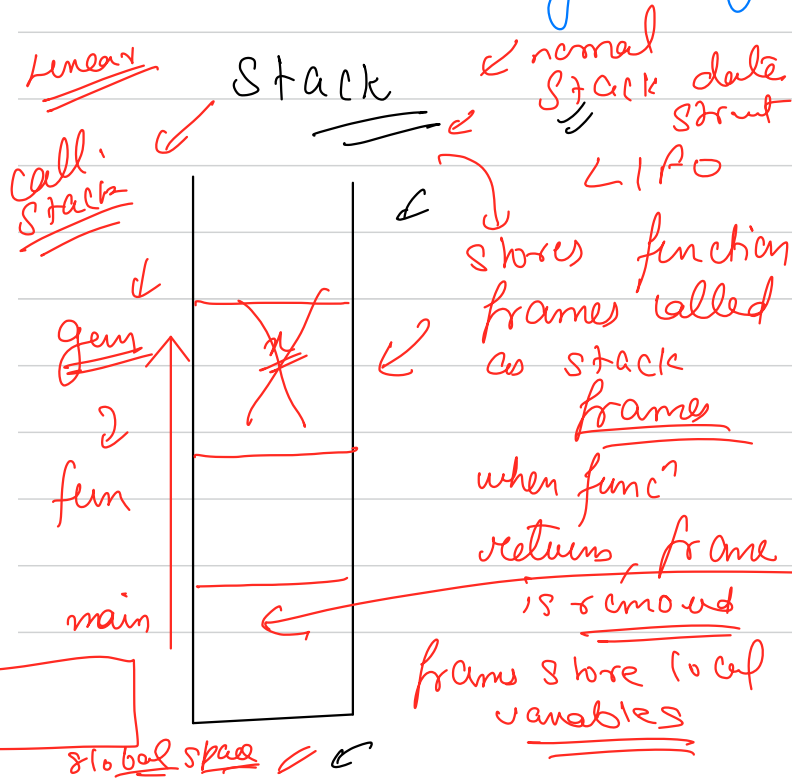 Linear
Stack
normal
Stack data
strut
LIFO
call
stack
stores function
frames called
as stack
frames
gun
x
fun
when funcn
returns, frame
is removed
main
frams store local
variables
global space